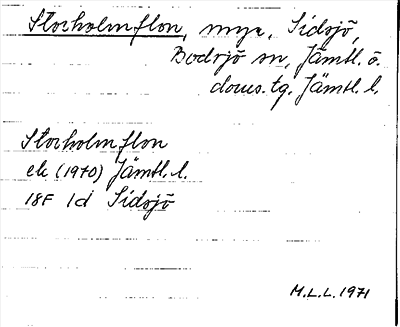 Storholmflon, myr, Sidsjö,
Bodsjö sn, Jämtl. ö.
doms.tg. Jämtl. l.
Storholmflon
ek (1970) Jämtl. l.
18F 1d Sidsjö
M.L.L. 1971